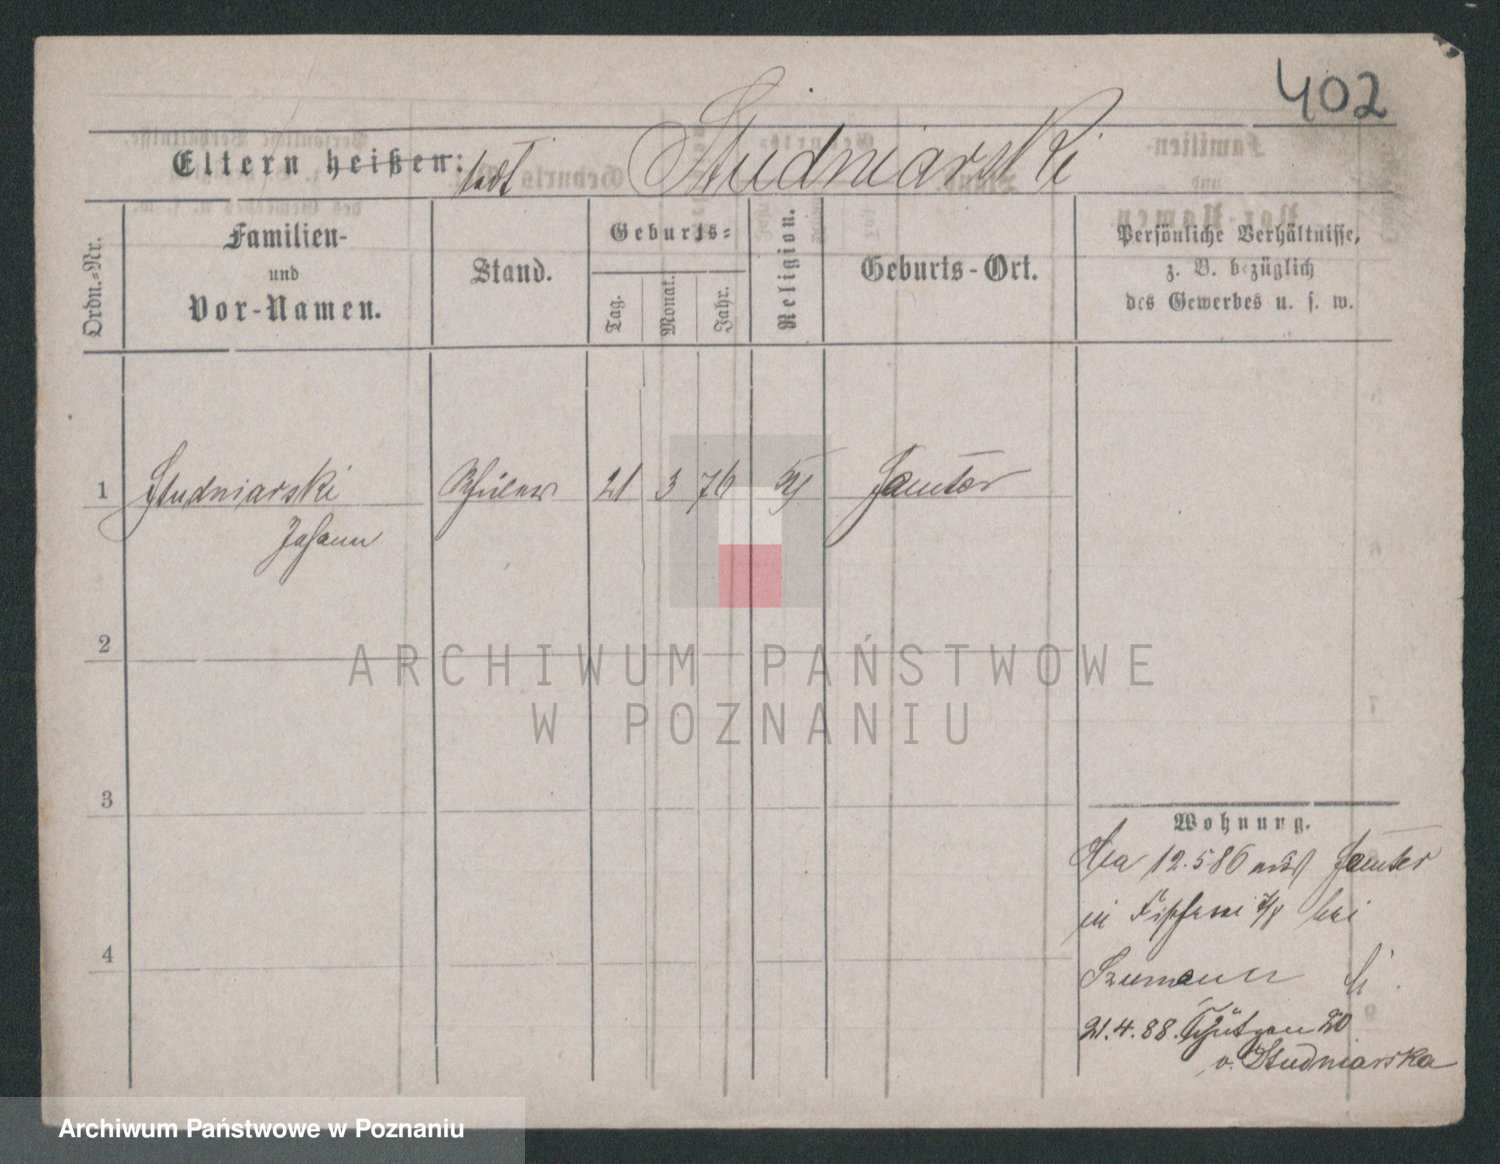 402
Eltern heißen: todt Studniarski
Ordn.-Nr.
Familien-
und
Vor-Namen.
Stand.
Geburts-
Tag.
Monat.
Jahr.
Religion.
Geburts-Ort.
Persönliche Verhältnisse,
z. B. bezüglich
des Gewerbes u. s. w.
1 Studniarski Schüler 21 3 76 Samter
Johann
2
3
4
Wohnung.
12.5 86 aus Samter
in Fischerei 7/8 bei
Szuman
21.4.88. Schützen 20
v. Studniarska
ARCHIWUM PAŃSTWOWE
W POZNANIU
Archiwum Państwowe w Poznaniu